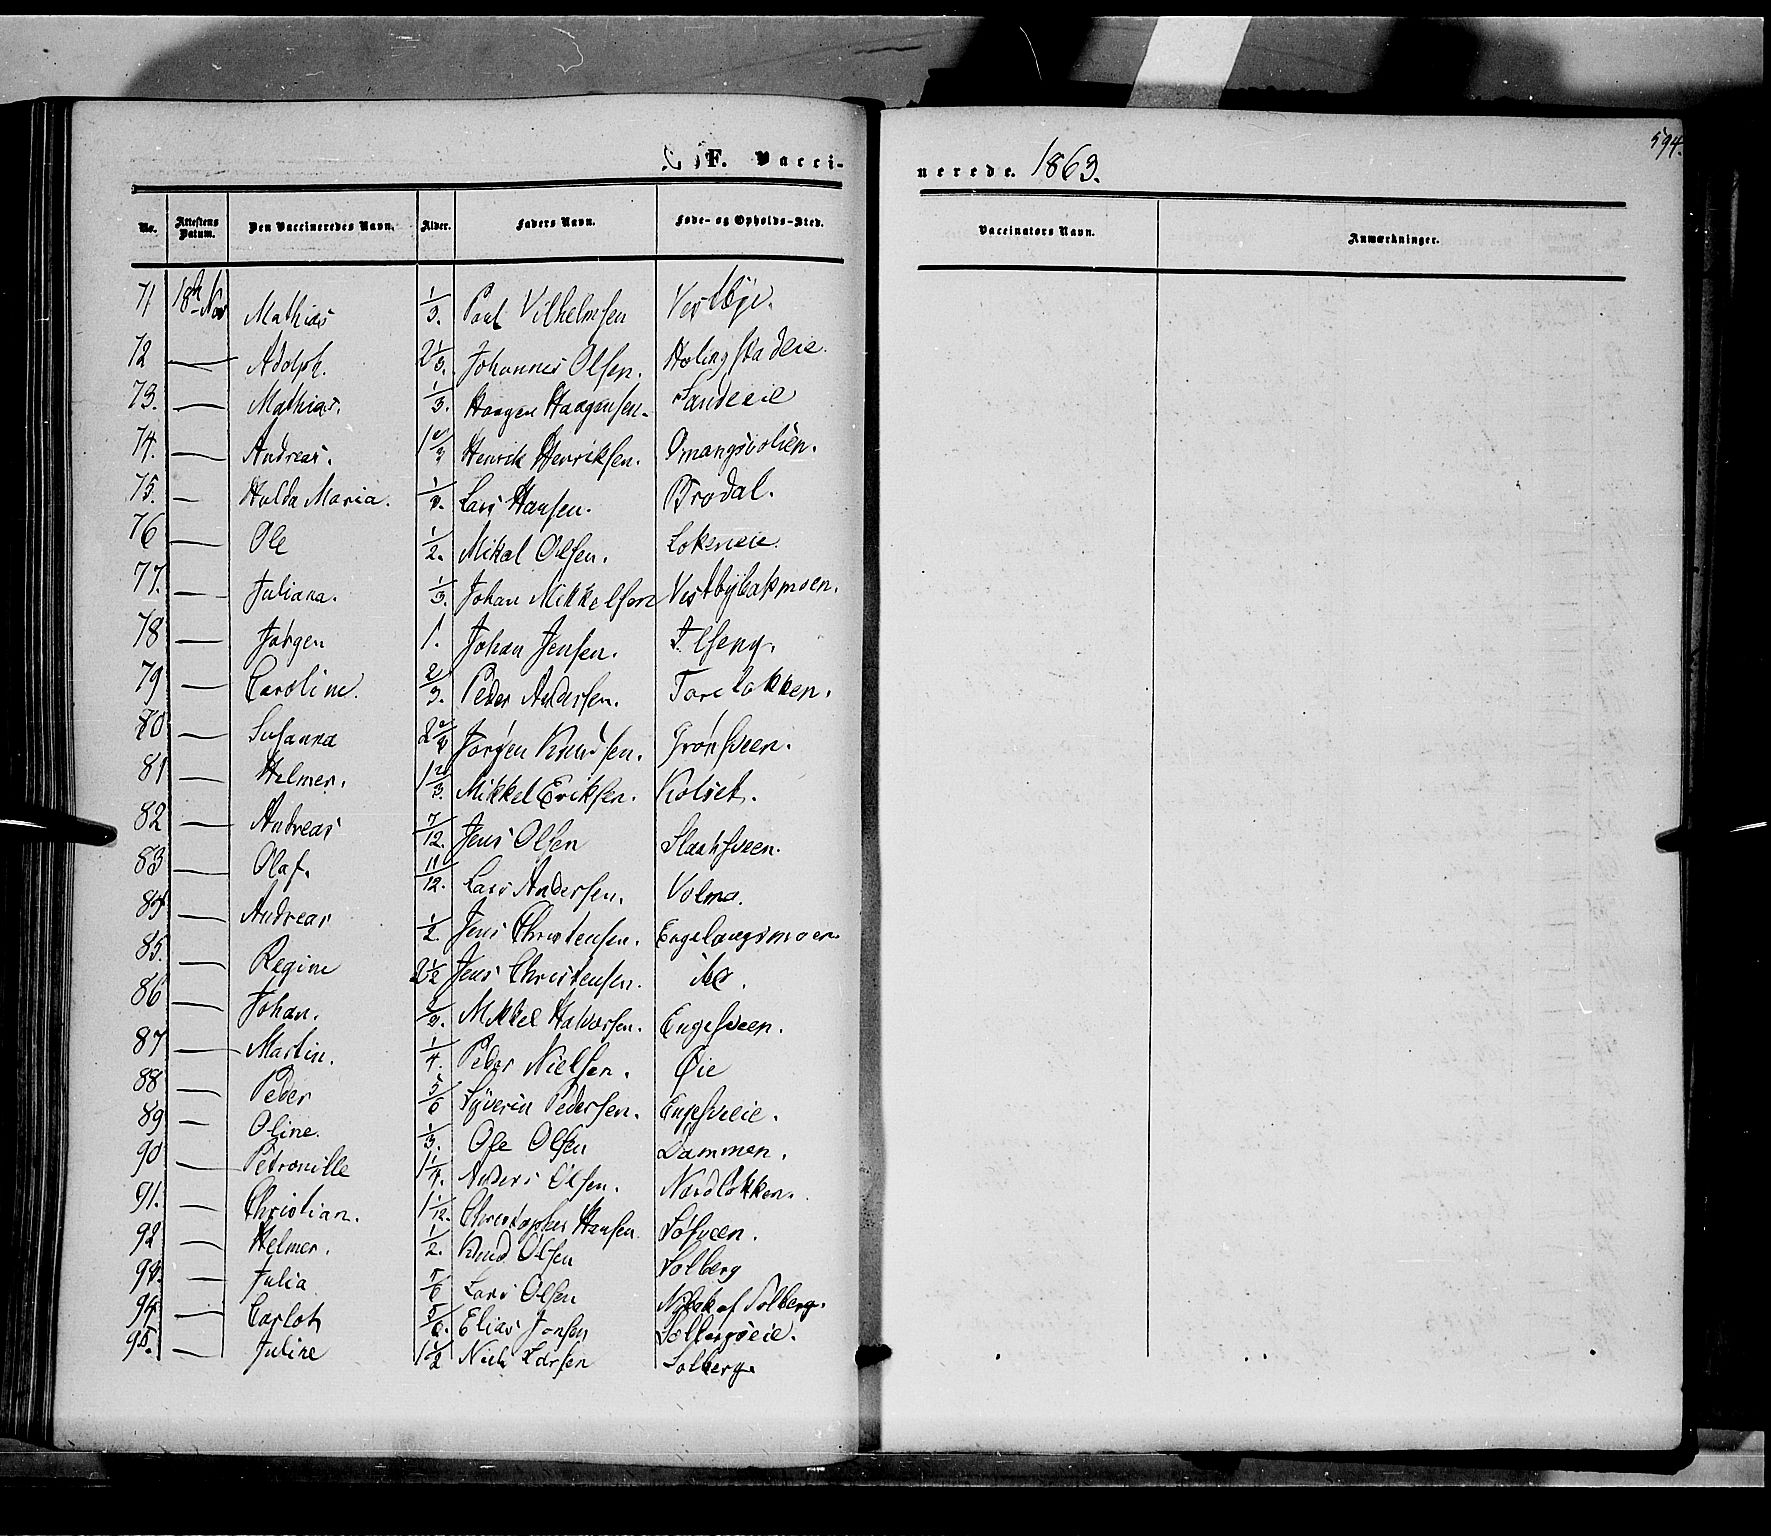 F. Vacci-
nerede. 1863.
594.
No. Attestens Datum. Den Vaccineredes Navn. Alder. Faders Navn. Føde- og Opholds-Sted. Vaccinators Navn. Anmærkninger.
71 18de Nov Mathias 1/3. Paul Vilhelmsen Vestbye.
72 — Adolph. 2 1/3. Johannes Olsen. Holingstadeie.
73. — Mathias. 1/3. Haagen Haagensen. Sandeeie
74. — Andreas. 1 2/3 Henrik Henriksen. Omangsvolien.
75. — Hulda Maria. 1/3. Lars Hansen. Brodal.
76 — Ole 1/2. Mikal Olsen. Lokeneie.
77. — Juliana. 1/3. Johan Mikkelsen Vestbybakmoen.
78 — Jørgen 1. Johan Jensen.
79 — Caroline. 2/3. Peder Andersen. Torelokken.
70 — Susanna 2 2/3 Jørgen Knudsen. Grønsveen.
81 — Helmer. 1 2/3. Mikkel Eriksen. Kolset.
82 — Andreas 7/12. Jens Olsen
83 — Olaf. 11/12. Lars Andersen. Volma.
84 — Andreas 1/2. Jens Christensen. Engelaugsmoen.
85. — Regine 2 1/2 Jens Christensen.
86 — Johan. 2/3. Mikkel Halvorsen. Engesveen.
87 — Martin. 1/4. Peder Nielsen. Øie
88 — Peder 5/6 Syverin Pedersen.
89 — Oline. 1/3. Ole Olsen Dammen.
90 — Petronille 1 1/4. Anders Olsen. Nordlokken.
91. — Christian. 1 1/12. Christopher Hansen
92 — Helmer. 1/2. Knud Olsen Solberg
93. — Julia 5/6 Lars Olsen Nylak af Solberg.
94 — Carlot 5/6. Elias Jonsen Solbergseie.
95. — Juline 1 1/2 Niels Larsen Solberg.